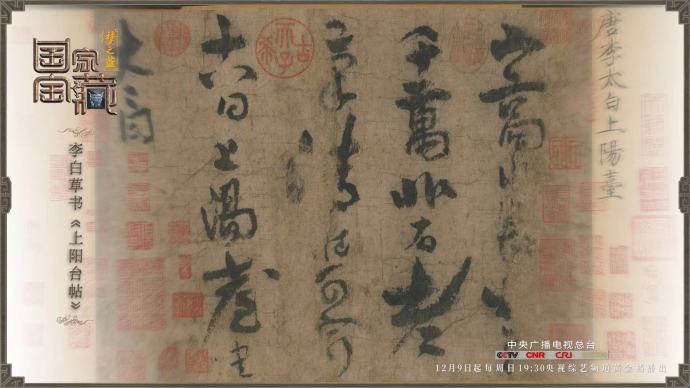 唐李太白上陽臺
山高水長物象
千萬非有老
筆清壯可窮
十八日上陽臺書
太白
梦之蓝
国家宝藏
李白草书《上阳台帖》
中央广播电视总台
CCTV CNR CRI
12月9日起每周日19:30央视综艺频道黄金档播出